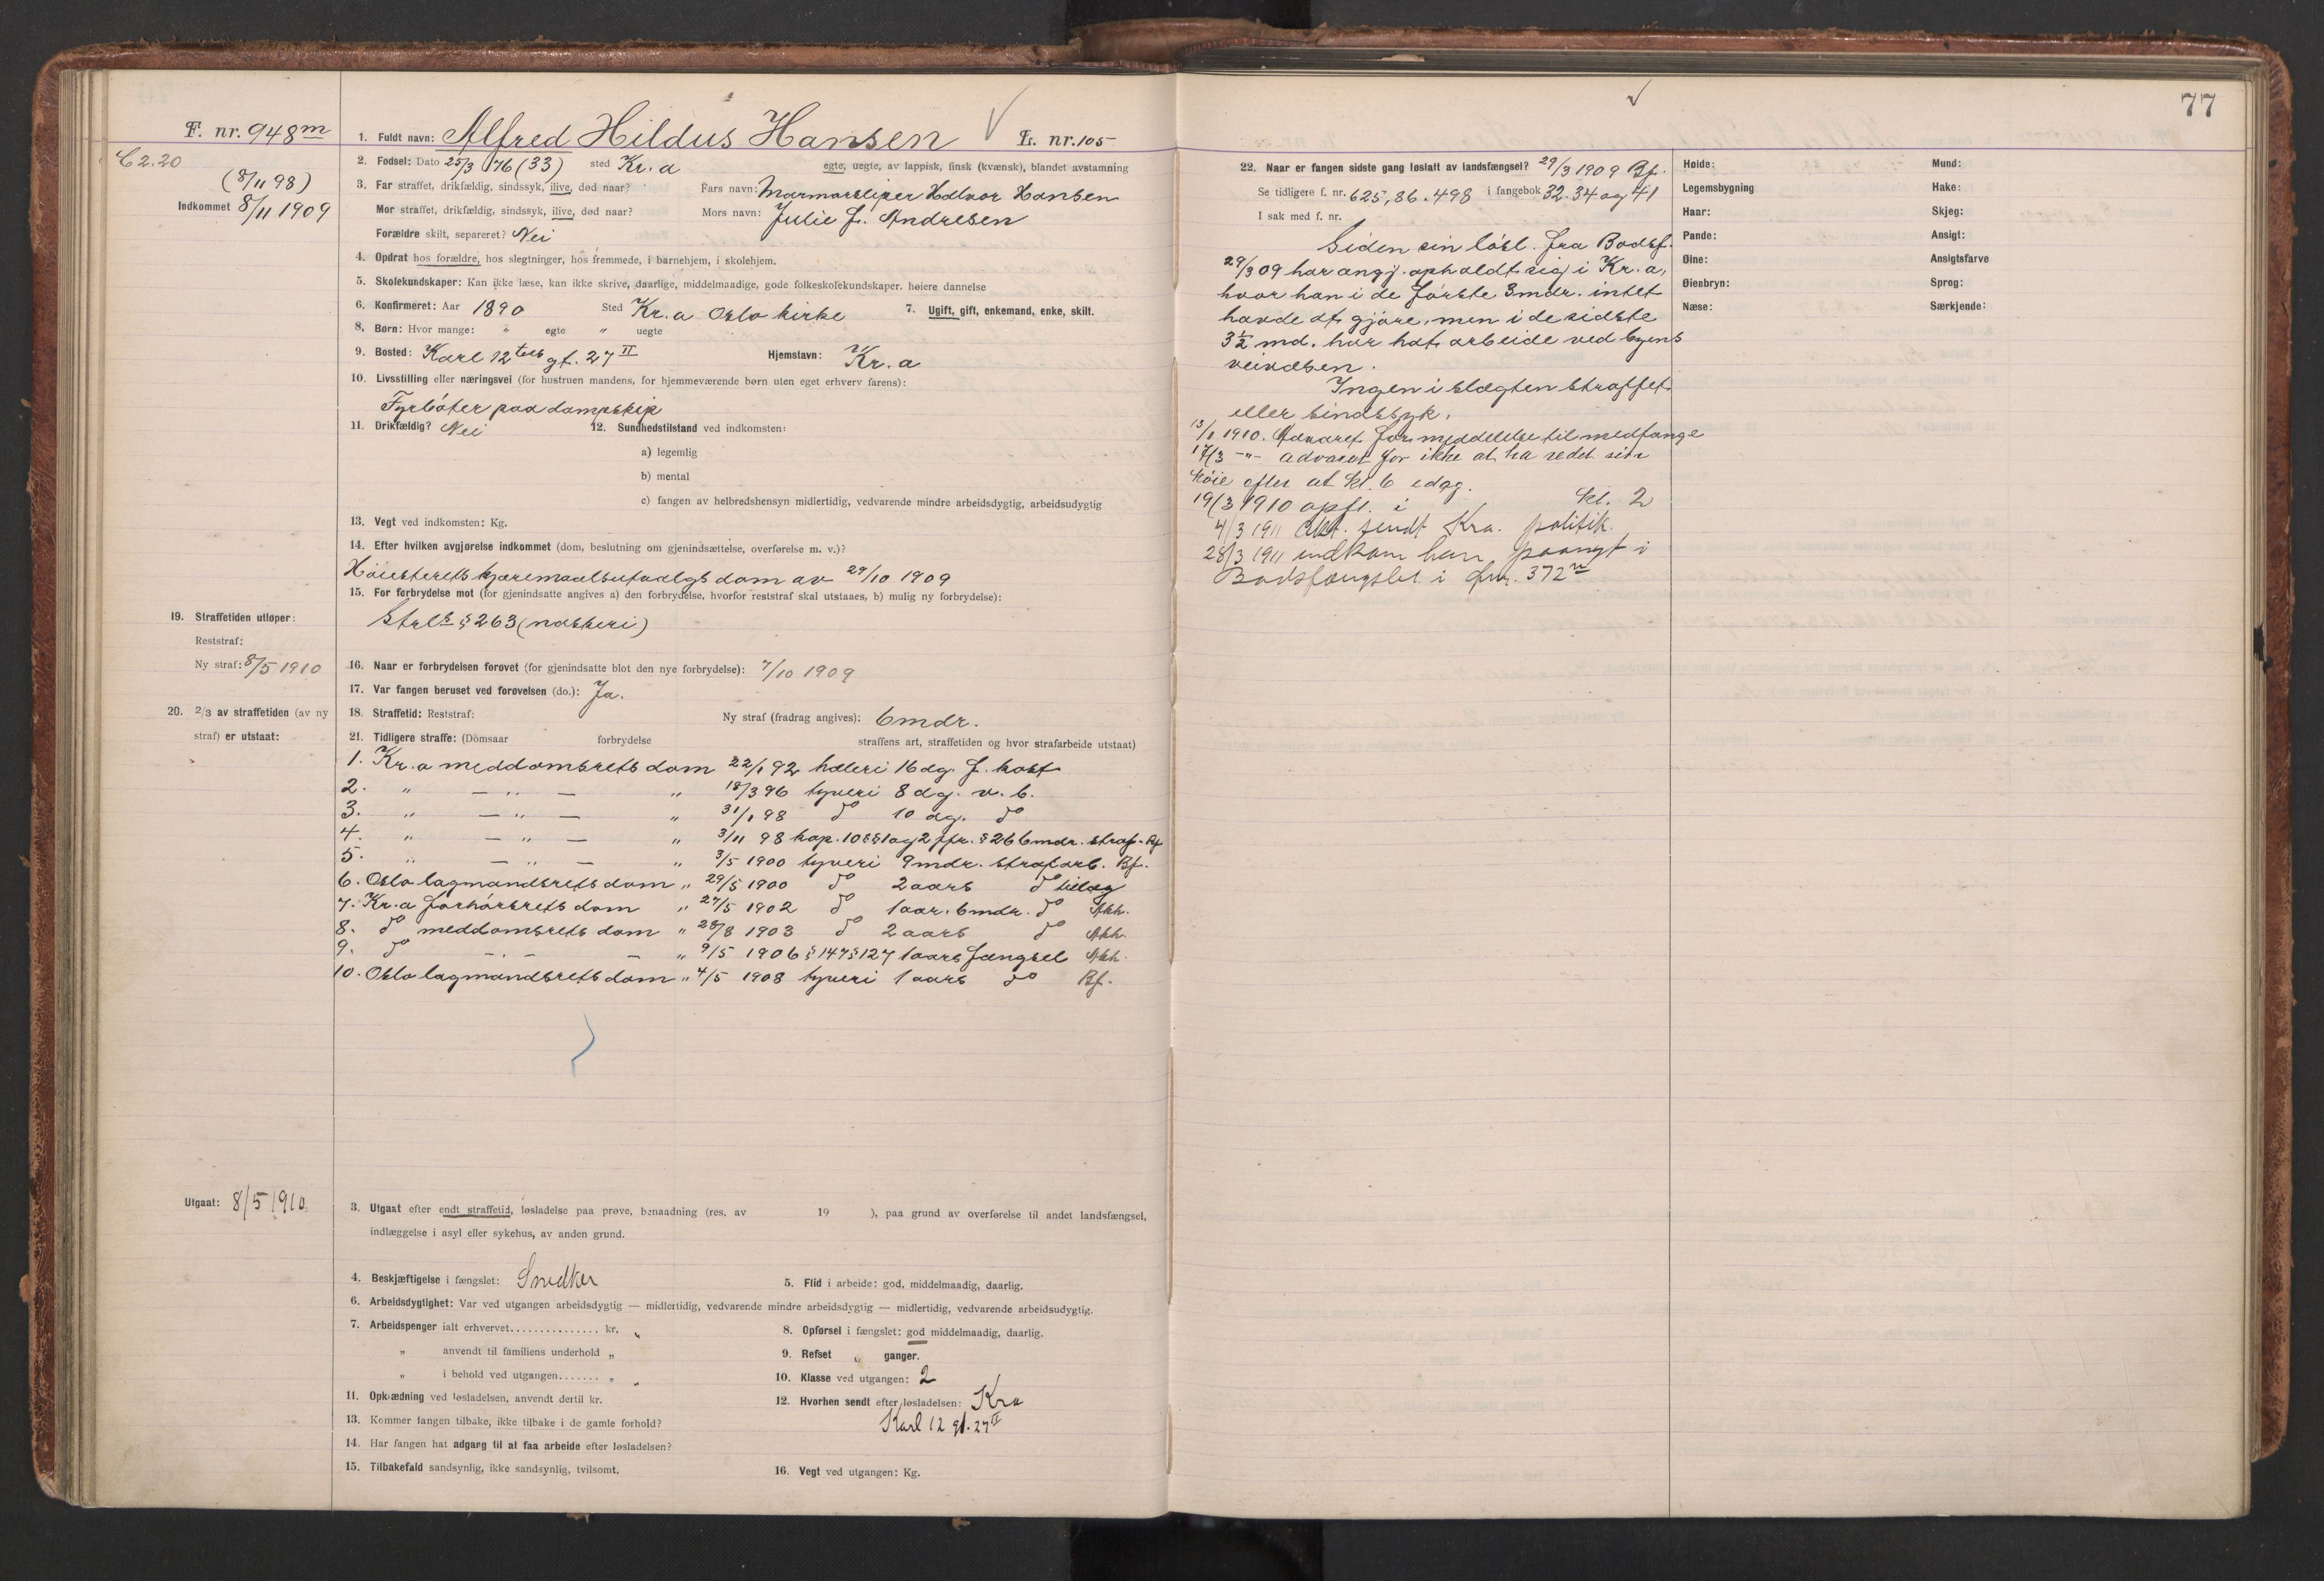 77
F. nr. 948 m
C 2.20
(8/11 98)
Indkommet 8/11 1909
1. Fuldt navn: Alfred Hildus Hansen L. nr. 105
2. Fødsel: Dato 25/3 76 (33) sted Kr.a egte, uegte, av lappisk, finsk (kvænsk), blandet avstamning
3. Far straffet, drikfældig, sindssyk, ilive, død naar? Fars navn: Marmorsliper Halvor Hansen
Mor straffet, drikfældig, sindssyk, ilive, død naar? Mors navn: Julie f. Andresen
Forældre skilt, separeret? Nei
4. Opdrat hos forældre, hos slegtninger, hos fremmede, i barnehjem, i skolehjem.
5. Skolekundskaper: Kan ikke læse, kan ikke skrive, daarlige, middelmaadige, gode folkeskolekundskaper. høiere dannelse
6. Konfirmeret: Aar 1890 Sted Kr.a Oslo kirke 7. Ugift, gift, enkemand, enke, skilt.
8. Børn: Hvor mange: " egte " uegte
9. Bosted: Karl 12tes gt. 27 II Hjemstavn: Kr.a
10. Livsstilling eller næringsvei (for hustruen mandens, for hjemmeværende børn uten eget erhverv farens):
Fyrbøter paa dampskip
11. Drikfældig? Nei 12. Sundhedstilstand ved indkomsten:
a) legemlig
b) mental
c) fangen av helbredshensyn midlertidig, vedvarende mindre arbeidsdygtig, arbeidsudygtig
13. Vegt ved indkomsten: Kg.
14. Efter hvilken avgjørelse indkommet (dom, beslutning om gjenindsættelse, overførelse m. v.)?
Høiesterets kjæremaalsutvalgs dom av 29/10 1909
15. For forbrydelse mot (for gjenindsatte angives a) den forbrydelse, hvorfor reststraf skal utstaaes, b) mulig ny forbrydelse):
Strl. § 263 (naskeri)
19. Straffetiden utløper:
Reststraf:
Ny straf: 8/5 1910
16. Naar er forbrydelsen forøvet (for gjenindsatte blot den nye forbrydelse): 7/10 1909
17. Var fangen beruset ved forøvelsen (do.): Ja.
20. 2/3 av straffetiden (av ny
straf) er utstaat:
18. Straffetid: Reststraf: Ny straf (fradrag angives): 6 mdr.
21. Tidligere straffe: (Domsaar forbrydelse straffens art, straffetiden og hvor strafarbeide utstaat)
1. Kr.a meddomsrets dom 22/1 92 hæleri 16 dg. f. kost
2. " — " — " 18/3 96 tyveri 8 dg. v. b.
3. " — " — " 31/1 98 do 10 dg. do
4. " — " — " 3/11 98 kap. 10 §§ 1 og 2 jfr. § 26 6 mdr. straf. Bf
5. " — " — " 3/5 1900 tyveri 9 mdr. strafarb. Bf.
6. Oslo lagmandsrets dom " 29/5 1900 do 2 aars do tillæg
7. Kr.a forhørsrets dom " 27/5 1902 do 1 aar. 6 mdr. do Akh.
8. do meddomsrets dom " 28/8 1903 do 2 aars do Akh.
9. do — " — " 9/5 1906 § 147 § 127 1 aars fængsel Akh.
10. Oslo lagmandsrets dom " 4/5 1908 tyveri 1 aars do Bf.
Utgaat: 8/5 1910
3. Utgaat efter endt straffetid, løsladelse paa prøve, benaadning (res. av 19 ), paa grund av overførelse til andet landsfængsel,
indlæggelse i asyl eller sykehus, av anden grund.
4. Beskjæftigelse i fængslet: Snedker 5. Flid i arbeide: god, middelmaadig, daarlig.
6. Arbeidsdygtighet: Var ved utgangen arbeidsdygtig — midlertidig, vedvarende mindre arbeidsdygtig — midlertidig, vedvarende arbeidsudygtig.
7. Arbeidspenger ialt erhvervet............... kr. " 8. Opførsel i fængslet: god middelmaadig, daarlig.
" anvendt til familiens underhold " 9. Refset " ganger.
" i behold ved utgangen....... " " 10. Klasse ved utgangen: 2
11. Opklædning ved løsladelsen, anvendt dertil kr. 12. Hvorhen sendt efter løsladelsen: Kra
13. Kommer fangen tilbake, ikke tilbake i de gamle forhold? Karl 12 gt. 27 II
14. Har fangen hat adgang til at faa arbeide efter løsladelsen?
15. Tilbakefald sandsynlig, ikke sandsynlig, tvilsomt. 16. Vegt ved utgangen: Kg.
22. Naar er fangen sidste gang løslatt av landsfængsel? 29/3 1909 Bf.
Se tidligere f. nr. 625, 86. 498 i fangebok 32. 34 og 41
I sak med f. nr.
Siden sin løsl. fra Bodsf.
29/3 09 har angj. opholdt sig i Kr.a,
hvor han i de første 3 mdr. intet
havde at gjøre, men i de sidste
3 1/2 md. har hat arbeide ved byens
veivæsen.
Ingen i slægten straffet
eller sindssyk.
13/1 1910. Advaret for meddelelse til medfange
17/3 -"- advaret for ikke at ha redet sin
køie efter at kl. 6 idag.
19/3 1910 opfl. i kl. 2
4/3 1911 Akt. sendt Kra. politik.
28/3 1911 indkom han paanyt i
Bodsfængslet i fnr. 372 n
Høide:
Legemsbygning
Haar:
Pande:
Øine:
Øienbryn:
Næse:
Mund:
Hake:
Skjeg:
Ansigt:
Ansigtsfarve
Sprog:
Særkjende: